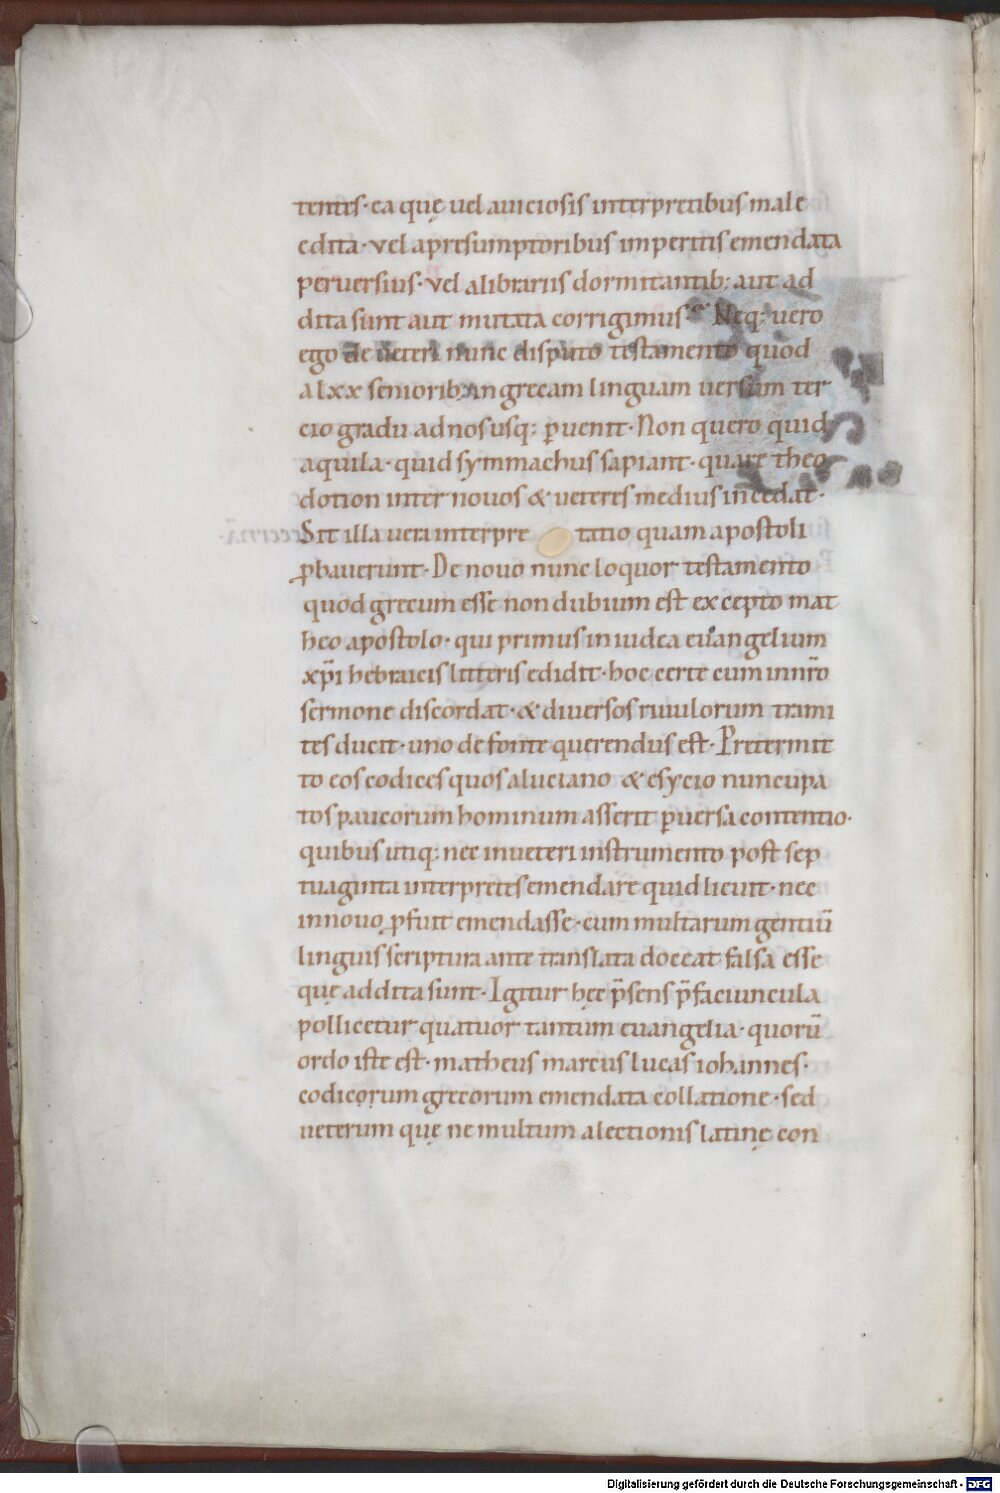 tentes· ea quę uel auiciosis interpretibus male
edita· vel apresumptoribus imperitis emendata
peruersius· vel alibrariis dormitantib; aut ad
dita sunt aut mutata corrigimus· Neq; uero
ego de ueteri nunc disputo testamento quod
a lxx seniorib; in grecam linguam uersum ter
cio gradu ad nos usq; ꝑuenit· Non quero quid
aquila· quid symmachus sapiant· quare theo
dotion inter nouos & ueteres medius incedat·
Sit illa uera interpre tatio quam apostoli
ꝓbauerunt· De nouo nunc loquor testamento
quod grecum esse non dubium est excepto mat
heo apostolo· qui primus in iudea euangelium
xp̄i hebraicis litteris edidit· hoc certe cum in nr̄o
sermone discordat· & diuersos riuulorum trami
tes ducit· uno de fonte querendus est· Pretermit
to eos codices quos a luciano & esycio nuncupa
tos paucorum hominum asserit ꝑuersa contentio·
quibus utiq; nec in ueteri instrumento post sep
tuaginta interpretes emendare quid licuit· nec
in nouo ꝓfuit emendasse· cum multarum gentiū
linguis scriptura ante translata doceat falsa esse
quę addita sunt· Igitur hęc p̄sens p̄faciuncula
pollicetur quatuor tantum euangelia· quorū
ordo iste est· matheus marcus lucas iohannes·
codicorum grecorum emendata collatione· sed
ueterum quę ne multum a lectionis latinę con
Digitalisierung gefördert durch die Deutsche Forschungsgemeinschaft - DFG